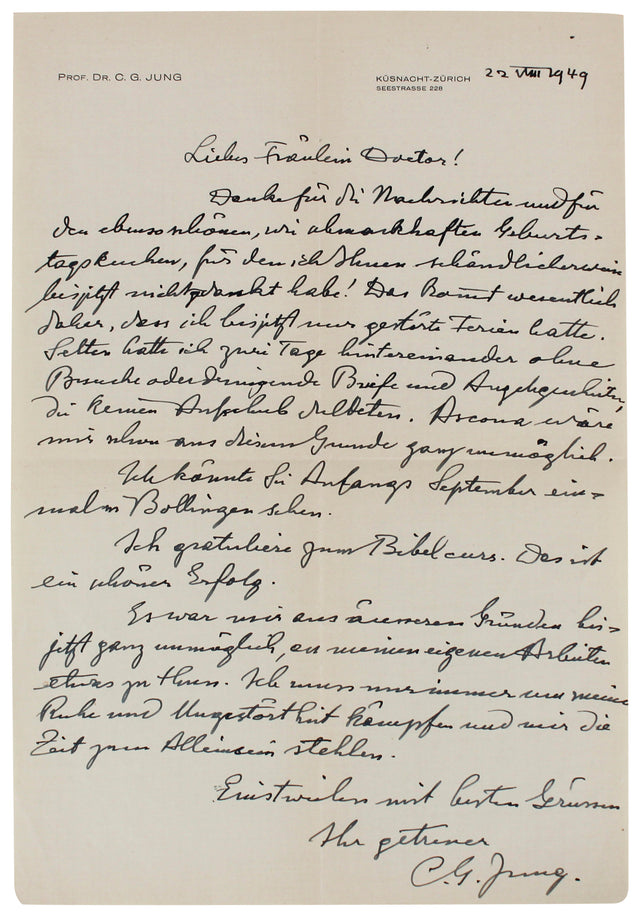 PROF. DR. C. G. JUNG
KÜSNACHT-ZÜRICH 22 VIII 1949
SEESTRASSE 228
Liebes Fräulein Doctor!
Danke für die Nachrichten und für
den ebenso schönen, wie schmackhaften Geburts-
tagskuchen, für den ich Ihnen schändlicherweise
bisjetzt nicht gedankt habe! Das kommt wesentlich
daher, dass ich bisjetzt nur gestörte Ferien hatte.
Selten hatte ich zwei Tage hintereinander ohne
Besuche oder dringende Briefe und Angelegenheiten,
die keinen Aufschub duldeten. Ascona wäre
mir schon aus diesem Grunde ganz unmöglich.
Ich könnte Sie Anfangs September ein-
mal in Bollingen sehen.
Ich gratuliere zum Bibelcurs. Das ist
ein schöner Erfolg.
Es war mir aus äusseren Gründen bis-
jetzt ganz unmöglich, an meinen eigenen Arbeiten
etwas zu thun. Ich muss nur immer um meine
Ruhe und Ungestörtheit kämpfen und mir die
Zeit zum Alleinsein stehlen.
Einstweilen mit besten Grüssen
Ihr getreuer
C. G. Jung.